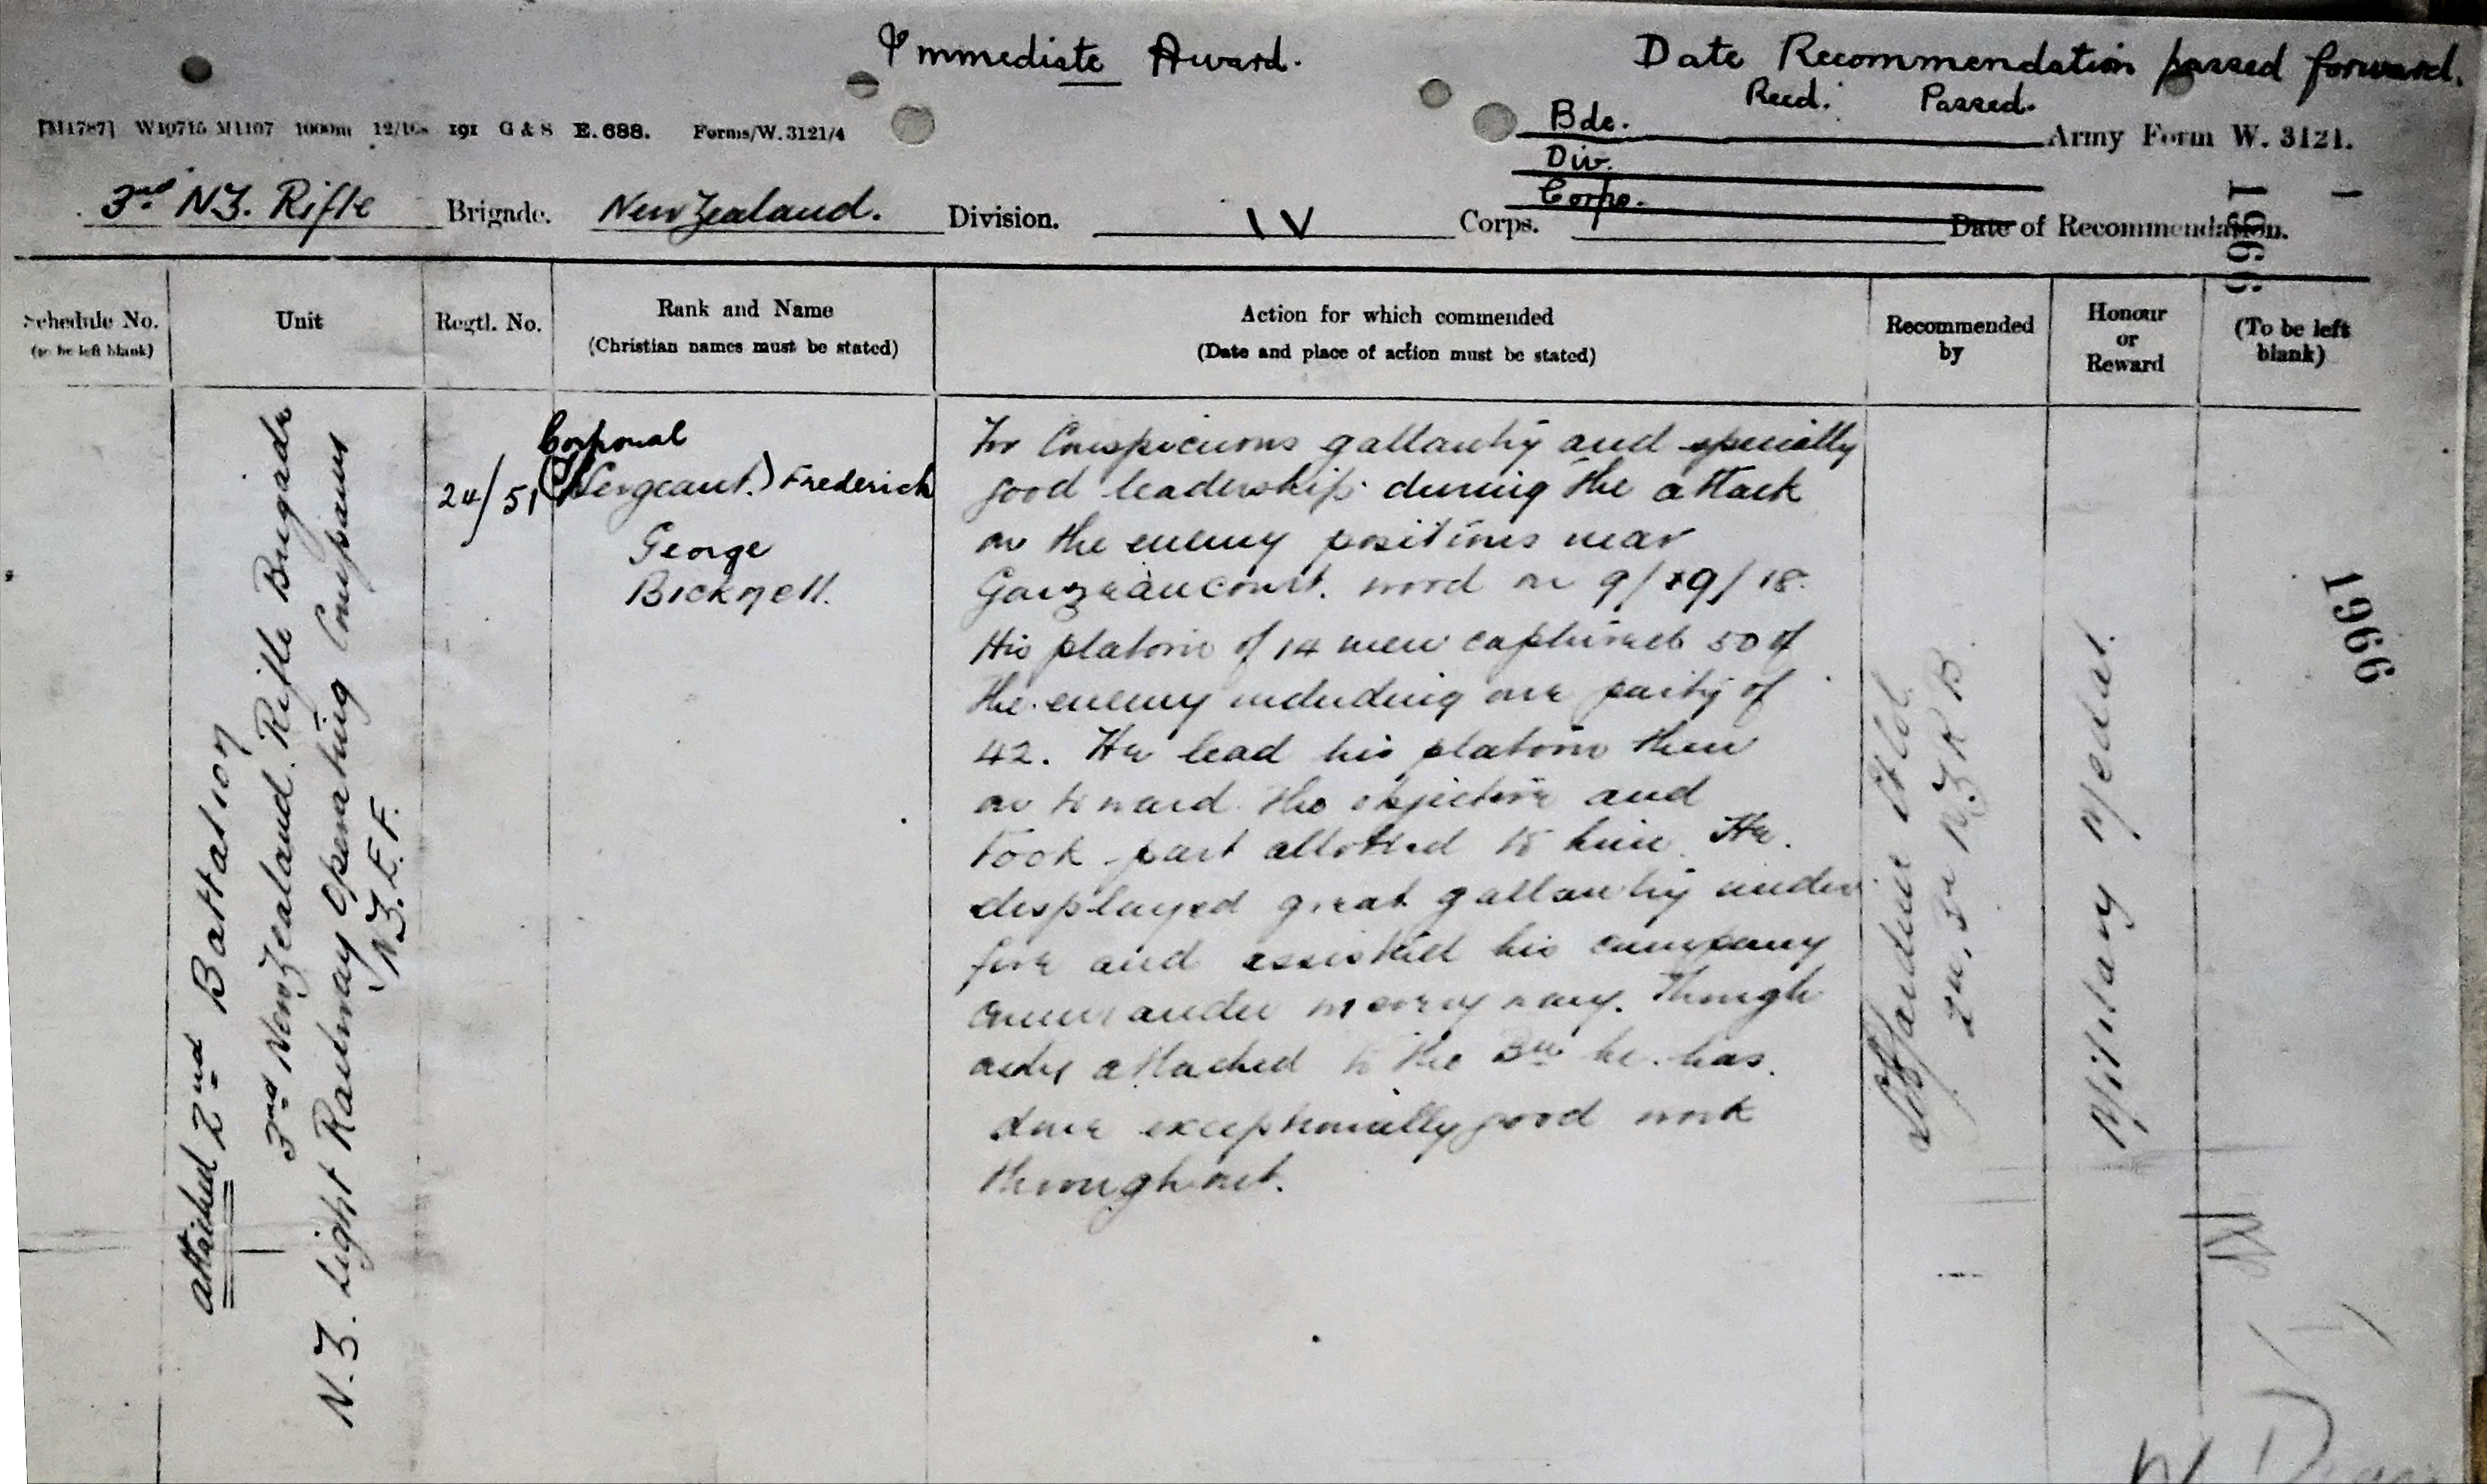 Immediate Award.
Date Recommendation passed forward.
Recd. Passed.
[M1787] W10715 M1107 1000m 191 G & S E. 688. Forms/W. 3121/4
Bde.
Army Form W. 3121.
Div.
Corps.
3rd N.Z. Rifle Brigade. New Zealand. Division. IV Corps. Date of Recommendation.
1966
Schedule No.
(to be left blank)
Unit
Regtl. No.
Rank and Name
(Christian names must be stated)
Action for which commended
(Date and place of action must be stated)
Recommended
by
Honour
or
Reward
(To be left
blank)
attached 2nd Battalion
3rd New Zealand Rifle Brigade
N.Z. Light Railway Operating Company
N.Z.E.F.
24/51
Corporal
(Sergeant.) Frederich
George
Bicknell.
For Conspicuous gallantry and specially
good leadership during the attack
on the enemy positions near
Gouzeaucourt. wood on 9/9/18.
His platoon of 14 men captured 50 of
the enemy including one party of
42. He lead his platoon then
on toward the objective and
took part allotted to him. He.
displayed great gallantry under
fire and assisted his company
commander in every way. Though
only attached to the Bn he has.
done exceptionally good work
throughout.
Jardine
2n. Bn N.Z.R.B.
Military Medal.
1966